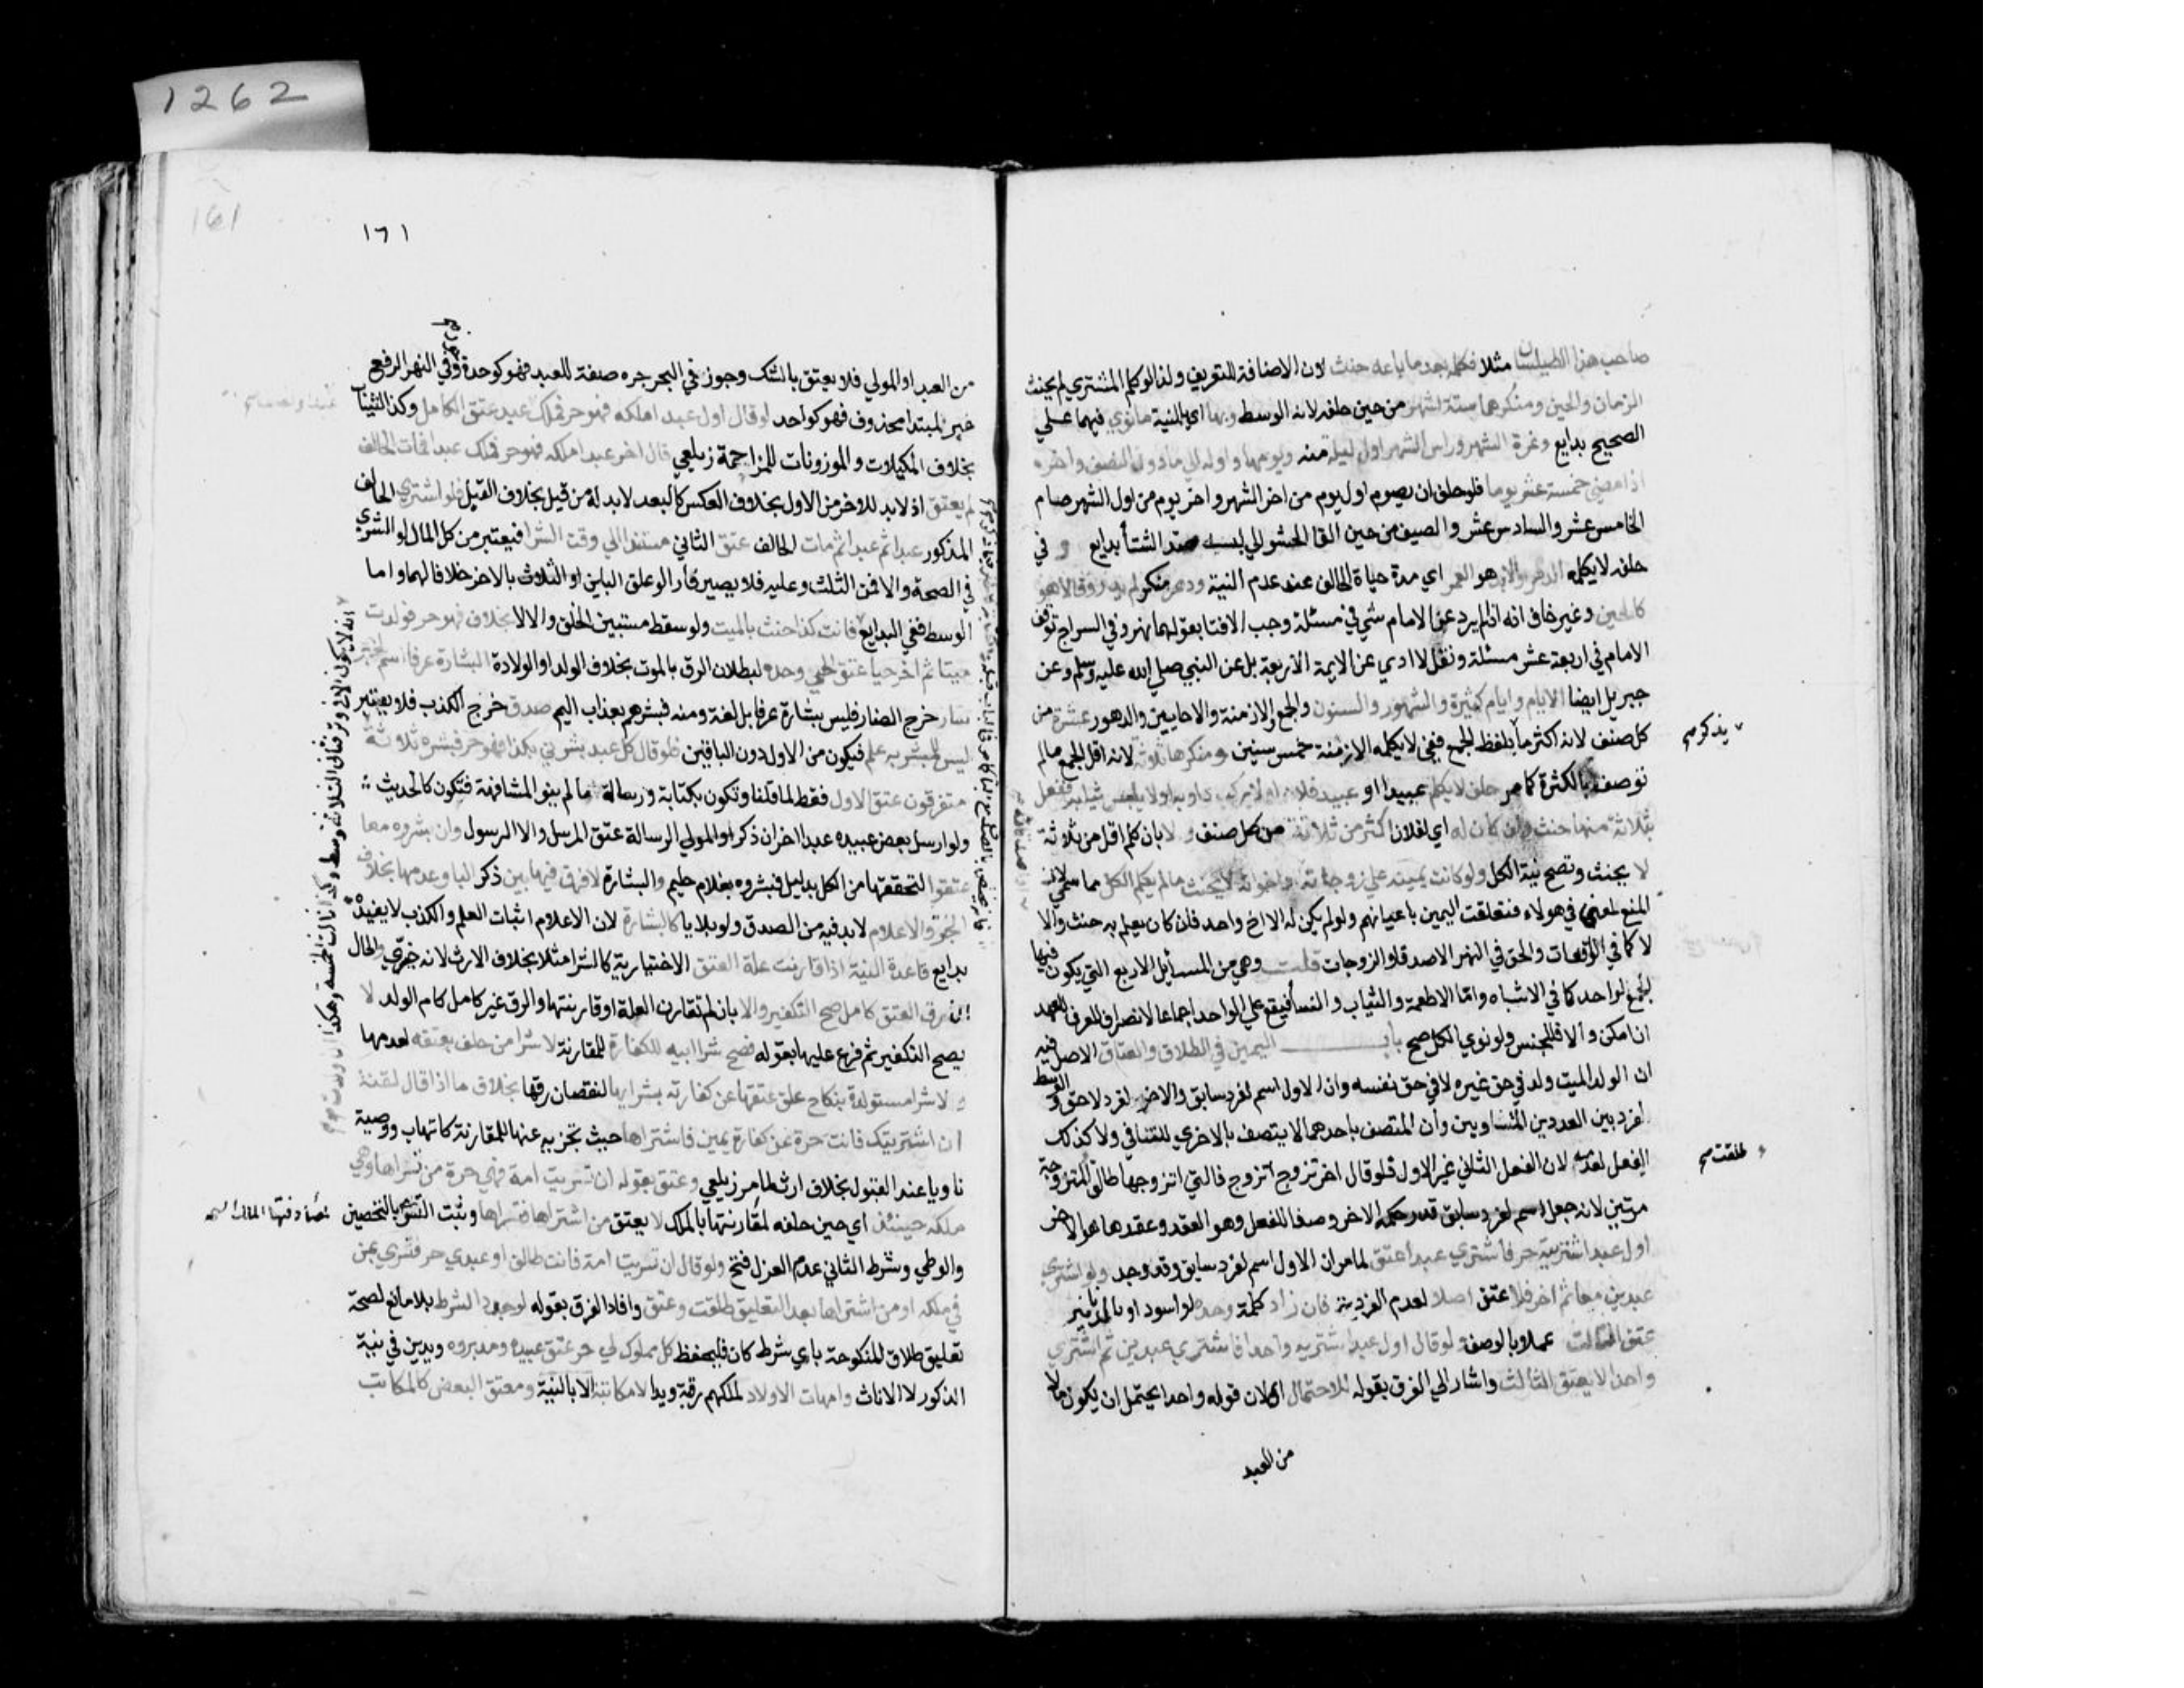 صاحب هذا الطيلسان مثلا فكلمه بعد ما باعه حنث لان الاضافة للتعريف ولذا لو كلم المشتري لم يحنث
الزمان والحين ومنكرهما ستة اشهر من حين حلفه لانه الوسط وبها اي بالنية ما نوي فيهما علي
الصحيح بدايع وغرة الشهر وراس الشهر اول ليلة منه ويومها واوله الي ما دون النصف واخره
اذا مضي خمسة عشر يوما فلو حلف ان يصوم اول يوم من اخر الشهر واخر يوم من اول الشهر صام
الخامس عشر والسادس عشر والصيف من حين القا الحشو الي لبسه ضد الشتا بدايع و في
حلفه لا يكلمه الدهر والابد هو العمر اي مدة حياة الحالف عند عدم النية ودهر منكر لم يدر وقالا هو
كالحين وغير خاف انه اذا لم يرد عن الامام شي في مسئلة وجب الافتا بقولهما نهر وفي السراج توقف
الامام في اربعة عشر مسئلة ونقل لا ادري عن الايمة الاربعة بل عن النبي صلي الله عليه وسلم وعن
جبريل ايضا الايام وايام كثيرة والشهور والسنون والجمع والازمنة والاحايين والدهور عشرة من
كل صنف لانه اكثر ما بلفظ الجمع ففي لا يكلمه الازمنة خمس سنين ومنكرها ثلاثة لانه اقل الجمع ما لم
يذكر صح
توصف بالكثرة كما مر حلف لا يكلم عبيدا او عبيد فلان او لا يركب دوابه او لا يلبس ثيابه ففعل
بثلاثة منها حنث وان كان له اي لفلان اكثر من ثلاثة من كل صنف والا بان كلم اقل من ثلاثة
لا يحنث وتصح نية الكل ولو كانت يمينه علي زوجاته واخوانه لا يحنث ما لم يكلم الكل مما سمي لان
المنع لمعني في هولاء فتعلقت اليمين باعيانهم ولو لم يكن له الا اخ واحد فان كان يعلم به حنث والا
لا كما في الواقعات والحق في النهر الاصدقا والزوجات قلت وهي من المسايل الاربع التي يكون فيها
الجمع لواحد كما في الاشباه واما الاطعمة والثياب والنسا فيقع علي الواحد اجماعا لانصراف المعرف للعهد
ان امكن والا فللجنس ولو نوي الكل صح باب اليمين في الطلاق والعتاق الاصل فيه
ان الولد الميت ولد في حق غيره لا في حق نفسه وان الاول اسم لفرد سابق والاخر لفرد لاحق والوسط
لفرد بين العددين المتساويين وان المتصف باحدهما لا يتصف بالاخري للتنافي ولا كذلك
الفعل لعدمه لان الفعل الثاني غير الاول فلو قال اخر تزوج اتزوج فالتي اتزوجها طالق المتزوجة
طلقت صح
مرتين لانه جعل اسم لفرد سابق الاخر وصفا للفعل وهو العقد وعقدها هو الاخر
اول عبد اشتريه حر فاشتري عبدا عتق لما مر ان الاول اسم لفرد سابق وقد وجد ولو اشتري
عبدين معا ثم اخر فلا عتق اصلا لعدم الفردية فان زاد كلمة وحده او اسود او بالدنانير
عتق الثالث عملا بالوصف ولو قال اول عبد اشتريه واحدا فاشتري عبدين ثم اشتري
واحدا لا يعتق الثالث واشار الي الفرق بقوله للاحتمال اي لان قوله واحدا يحتمل ان يكون حالا
من العبد
1262
161
١٦١
من العبد او المولي فلا يعتق بالشك وجوز في البحر جره صفة للعبد فهو كوحده وفي النهر الرفع
خبر لمبتدا محذوف فهو كواحد لو قال اول عبد املكه فهو حر فملك عبد عتق الكامل وكذا الثياب
بخلاف المكيلات والموزونات للمزاحمة زيلعي قال اخر عبد املكه فهو حر فملك عبدا فمات الحالف
لم يعتق اذ لا بد للاخر من الاول بخلاف العكس كالبعد لا بد له من قبل بخلاف القبل فلو اشتري الحالف
المذكور عبدا ثم عبدا ثم مات الحالف عتق الثاني مستندا الي وقت الشرا فيعتبر من كل المال لو الشري
في الصحة والا فمن الثلث وعليه فلا يصير فارا لو علق الباين او الثلاث بالاخر خلافا لهما واما
الوسط ففي البدايع فانت كذا حنث بالميت ولو سقط مستبين الخلق والا لا بخلاف فهو حر فولدت
ميتا ثم اخر حيا عتق الحي وحده لبطلان الرق بالموت بخلاف الولد او الولادة البشارة عرفا اسم لخبر
سار خرج الضار فليس بشارة عرفا بل لغة ومنه فبشرهم بعذاب اليم صدق خرج الكذب فلا يعتبر
ليس للمبشر به علم فيكون من الاول دون الباقين فلو قال كل عبد بشرني بكذا فهو حر فبشره ثلاثة
متفرقون عتق الاول فقط لما قلنا وتكون بكتابة ورسالة ما لم ينو المشافهة فتكون كالحديث
ولو ارسل بعض عبيده عبدا اخر ان ذكر او المولي الرسالة عتق المرسل والا الرسول وان بشروه معا
عتقوا لتحققها من الكل بدليل فبشروه بغلام حليم والبشارة لا فرق فيها بين ذكر البا وعدمها بخلاف
الخبر والاعلام لا بد فيه من الصدق ولو بلا با كالبشارة لان الاعلام اثبات العلم والكذب لا يفيده
بدايع قاعدة النية اذا قارنت علة العتق الاختيارية كالشرا مثلا بخلاف الارث لانه جبري والحال
ان رق العتق كامل صح التكفير والا بان لم تقارن العلة او قارنتها والرق غير كامل كام الولد لا
يصح التكفير ثم فرع عليها بقوله فصح شرا ابيه للكفارة للمقارنة لا شرا من حلف بعتقه لعدمها
ولا شرا مستولدة بنكاح علق عتقها عن كفارته بشرايها لنقصان رقها بخلاف ما اذا قال لقنة
ان اشتريتك فانت حرة عن كفارة يمين فاشتراها حيث تجزيه عنها للمقارنة كاتهاب ووصية
ناويا عند القبول بخلاف ارث لما مر زيلعي وعتق بقوله ان تسريت امة فهي حرة من تسراها وهي
ملكه حينئذ اي حين حلفه لمقارنتها بالملك لا يعتق من اشتراها فتسراها ويثبت التسري بالتحصين
والوطي وشرط الثاني عدم العزل فتح ولو قال ان تسريت امة فانت طالق او عبدي حر فتسري بمن
في ملكه او من اشتراها بعد التعليق طلقت وعتق وافاد الفرق بقوله لوجود الشرط بلا مانع لصحة
تعليق طلاق المنكوحة باي شرط كان فليحفظ كل مملوك لي حر عتق عبيده ومدبروه ويدين في نية
الذكور لا الاناث وامهات الاولاد لملكهم رقبة ويدا لا مكاتبه الا بالنية ومعتق البعض كالمكاتب